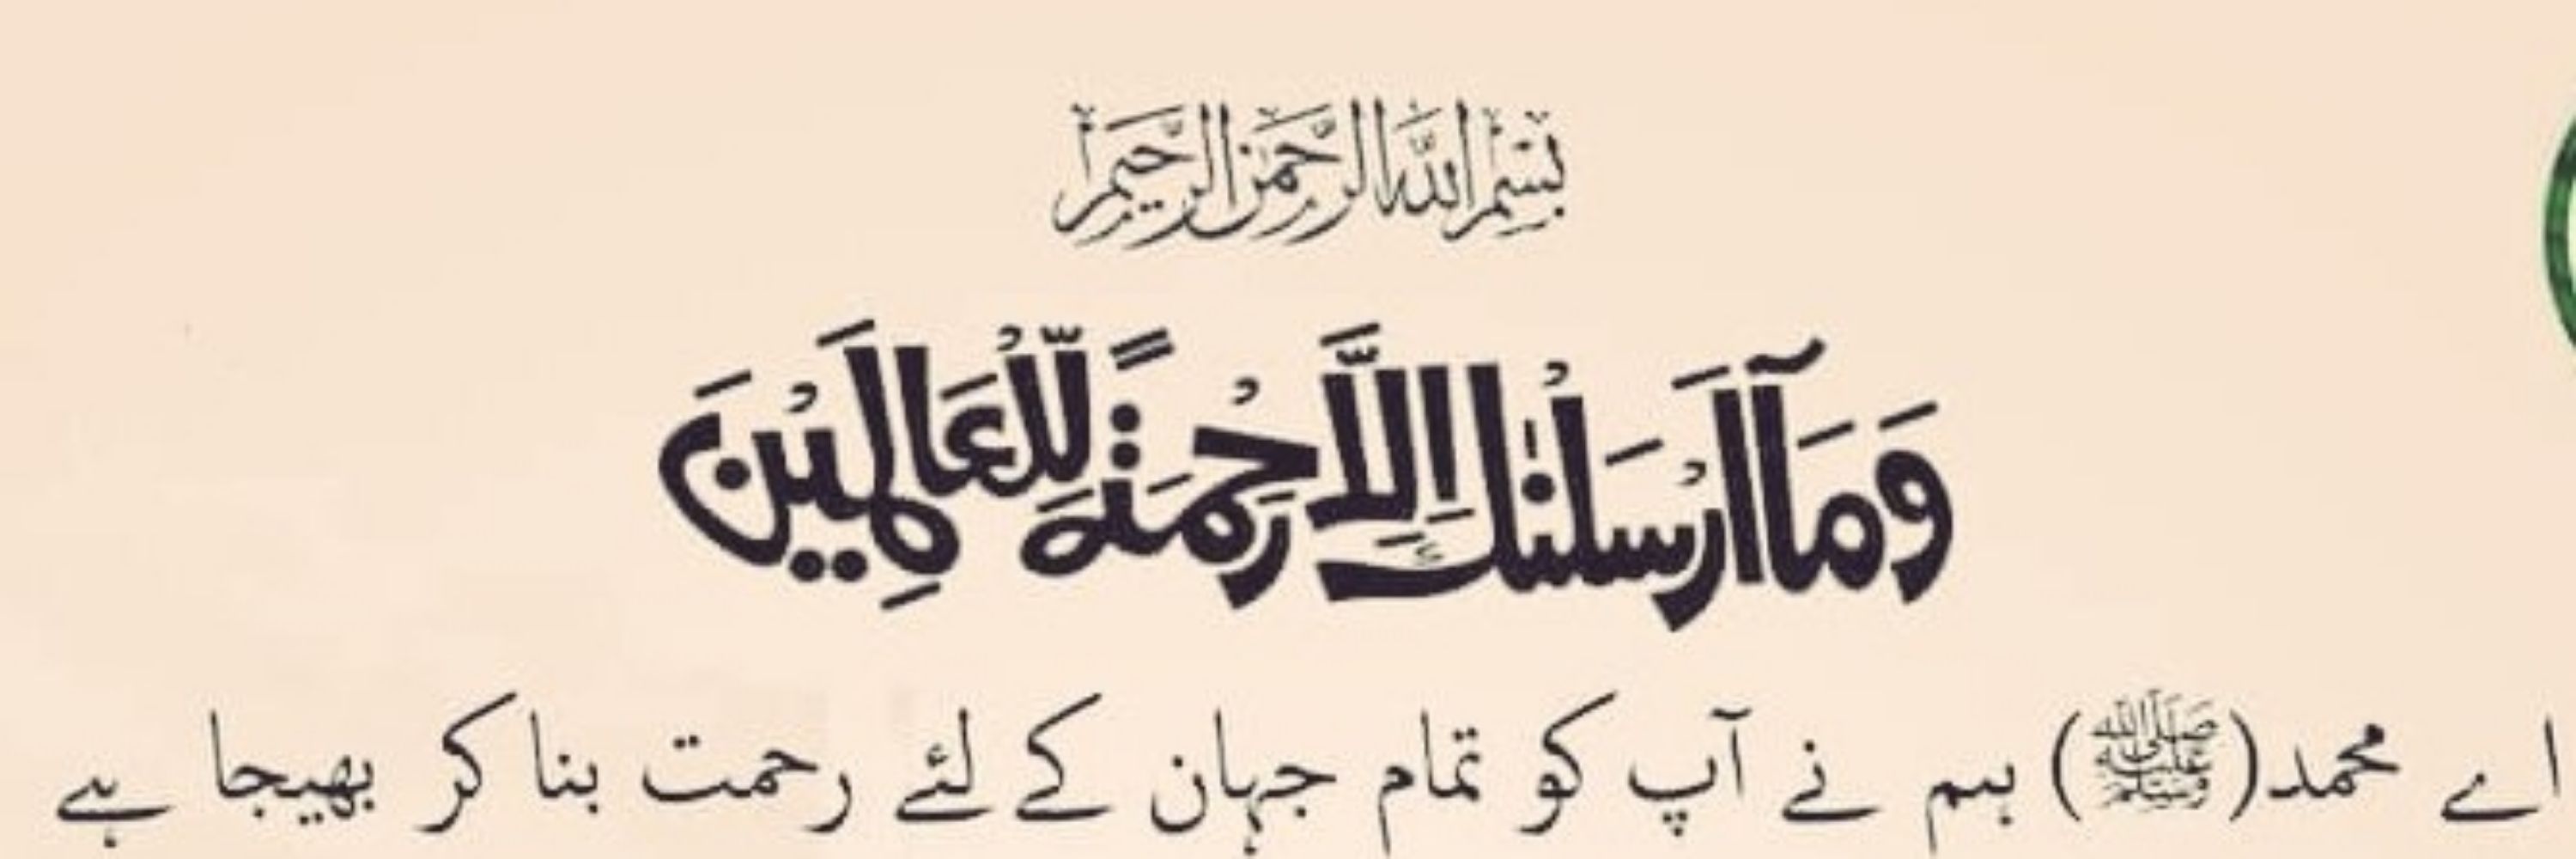 بِسْمِ اللهِ الرَّحْمٰنِ الرَّحِيْمِ
وَمَآ اَرْسَلْنٰكَ اِلَّا رَحْمَةً لِّلْعَالَمِيْنَ
اے محمد(ﷺ) ہم نے آپ کو تمام جہان کے لئے رحمت بنا کر بھیجا ہے